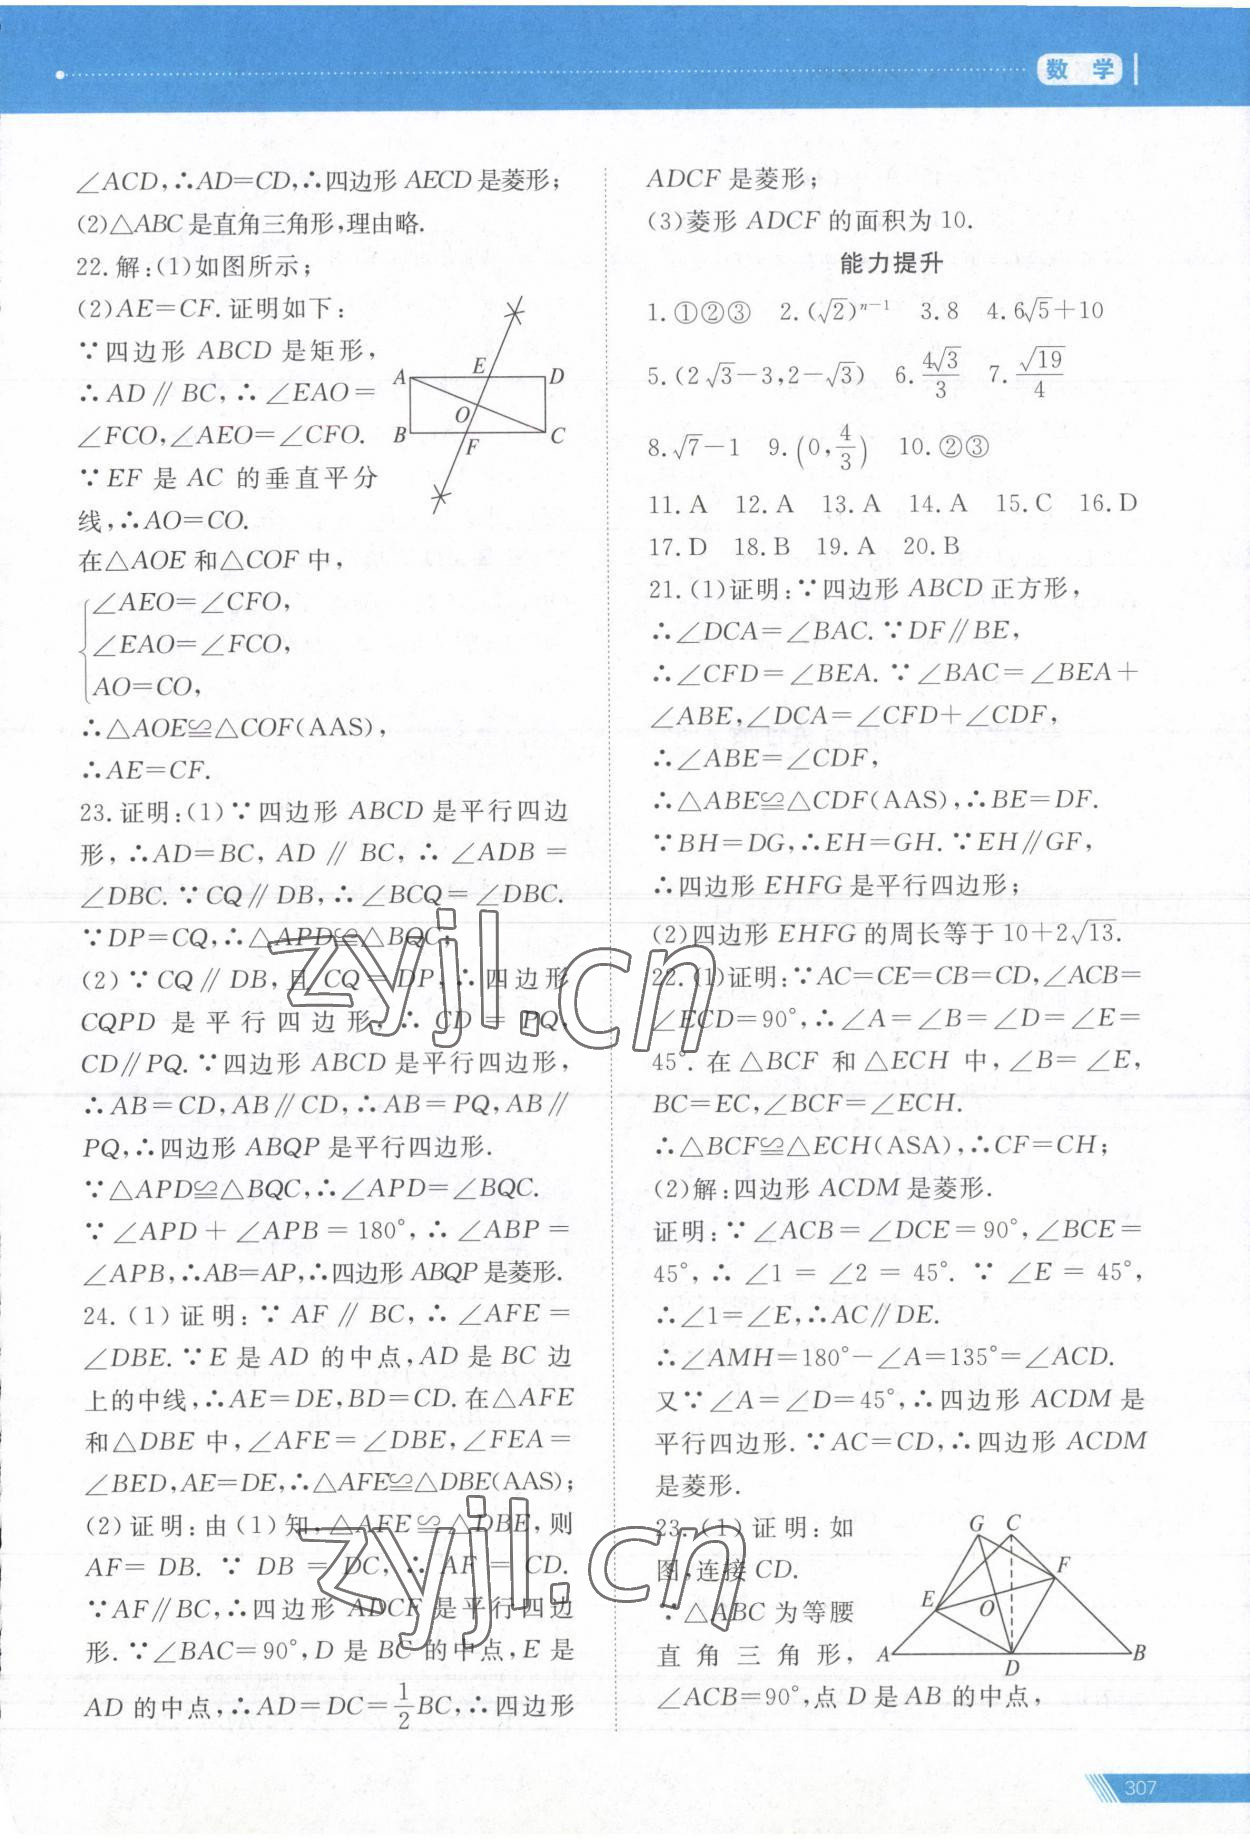 数 学
∠ACD,∴AD=CD,∴四边形 AECD 是菱形;
(2)△ABC 是直角三角形,理由略.
22.解:(1)如图所示;
(2)AE=CF.证明如下:
∵四边形 ABCD 是矩形,
∴AD∥BC,∴∠EAO=
∠FCO,∠AEO=∠CFO.
∵EF 是 AC 的垂直平分
线,∴AO=CO.
A E D
O
B F C
在△AOE 和△COF 中,
∠AEO=∠CFO,
∠EAO=∠FCO,
AO=CO,
∴△AOE≌△COF(AAS),
∴AE=CF.
23.证明:(1)∵四边形 ABCD 是平行四边
形,∴AD=BC,AD∥BC,∴∠ADB=
∠DBC.∵CQ∥DB,∴∠BCQ=∠DBC.
∵DP=CQ,∴△APD≌△BQC;
(2)∵CQ∥DB,且 CQ=DP,∴四边形
CQPD 是平行四边形,∴CD=PQ,
CD∥PQ.∵四边形 ABCD 是平行四边形,
∴AB=CD,AB∥CD,∴AB=PQ,AB∥
PQ,∴四边形 ABQP 是平行四边形.
∵△APD≌△BQC,∴∠APD=∠BQC.
∵∠APD+∠APB=180°,∴∠ABP=
∠APB,∴AB=AP,∴四边形 ABQP 是菱形.
24.(1)证明:∵AF∥BC,∴∠AFE=
∠DBE.∵E 是 AD 的中点,AD 是 BC 边
上的中线,∴AE=DE,BD=CD.在△AFE
和△DBE 中,∠AFE=∠DBE,∠FEA=
∠BED,AE=DE,∴△AFE≌△DBE(AAS);
(2)证明:由(1)知,△AFE≌△DBE,则
AF=DB.∵DB=DC,∴AF=CD.
∵AF∥BC,∴四边形 ADCF 是平行四边
形.∵∠BAC=90°,D 是 BC 的中点,E 是
AD 的中点,∴AD=DC=1/2BC,∴四边形
ADCF 是菱形;
(3)菱形 ADCF 的面积为 10.
能力提升
1.①②③ 2.(√2)ⁿ⁻¹ 3.8 4.6√5+10
5.(2√3-3,2-√3) 6.4√3/3 7.√19/4
8.√7-1 9.(0,4/3) 10.②③
11.A 12.A 13.A 14.A 15.C 16.D
17.D 18.B 19.A 20.B
21.(1)证明:∵四边形 ABCD 正方形,
∴∠DCA=∠BAC.∵DF∥BE,
∴∠CFD=∠BEA.∵∠BAC=∠BEA+
∠ABE,∠DCA=∠CFD+∠CDF,
∴∠ABE=∠CDF,
∴△ABE≌△CDF(AAS),∴BE=DF.
∵BH=DG,∴EH=GH.∵EH∥GF,
∴四边形 EHFG 是平行四边形;
(2)四边形 EHFG 的周长等于 10+2√13.
22.(1)证明:∵AC=CE=CB=CD,∠ACB=
∠ECD=90°,∴∠A=∠B=∠D=∠E=
45°.在△BCF 和△ECH 中,∠B=∠E,
BC=EC,∠BCF=∠ECH.
∴△BCF≌△ECH(ASA),∴CF=CH;
(2)解:四边形 ACDM 是菱形.
证明:∵∠ACB=∠DCE=90°,∠BCE=
45°,∴∠1=∠2=45°.∵∠E=45°,
∴∠1=∠E,∴AC∥DE.
∴∠AMH=180°-∠A=135°=∠ACD.
又∵∠A=∠D=45°,∴四边形 ACDM 是
平行四边形.∵AC=CD,∴四边形 ACDM
是菱形.
23.(1)证明:如
图,连接 CD.
∵△ABC 为等腰
直角三角形,
∠ACB=90°,点 D 是 AB 的中点,
G C
F
E O
A D B
zyjl.cn
zyjl.cn
307